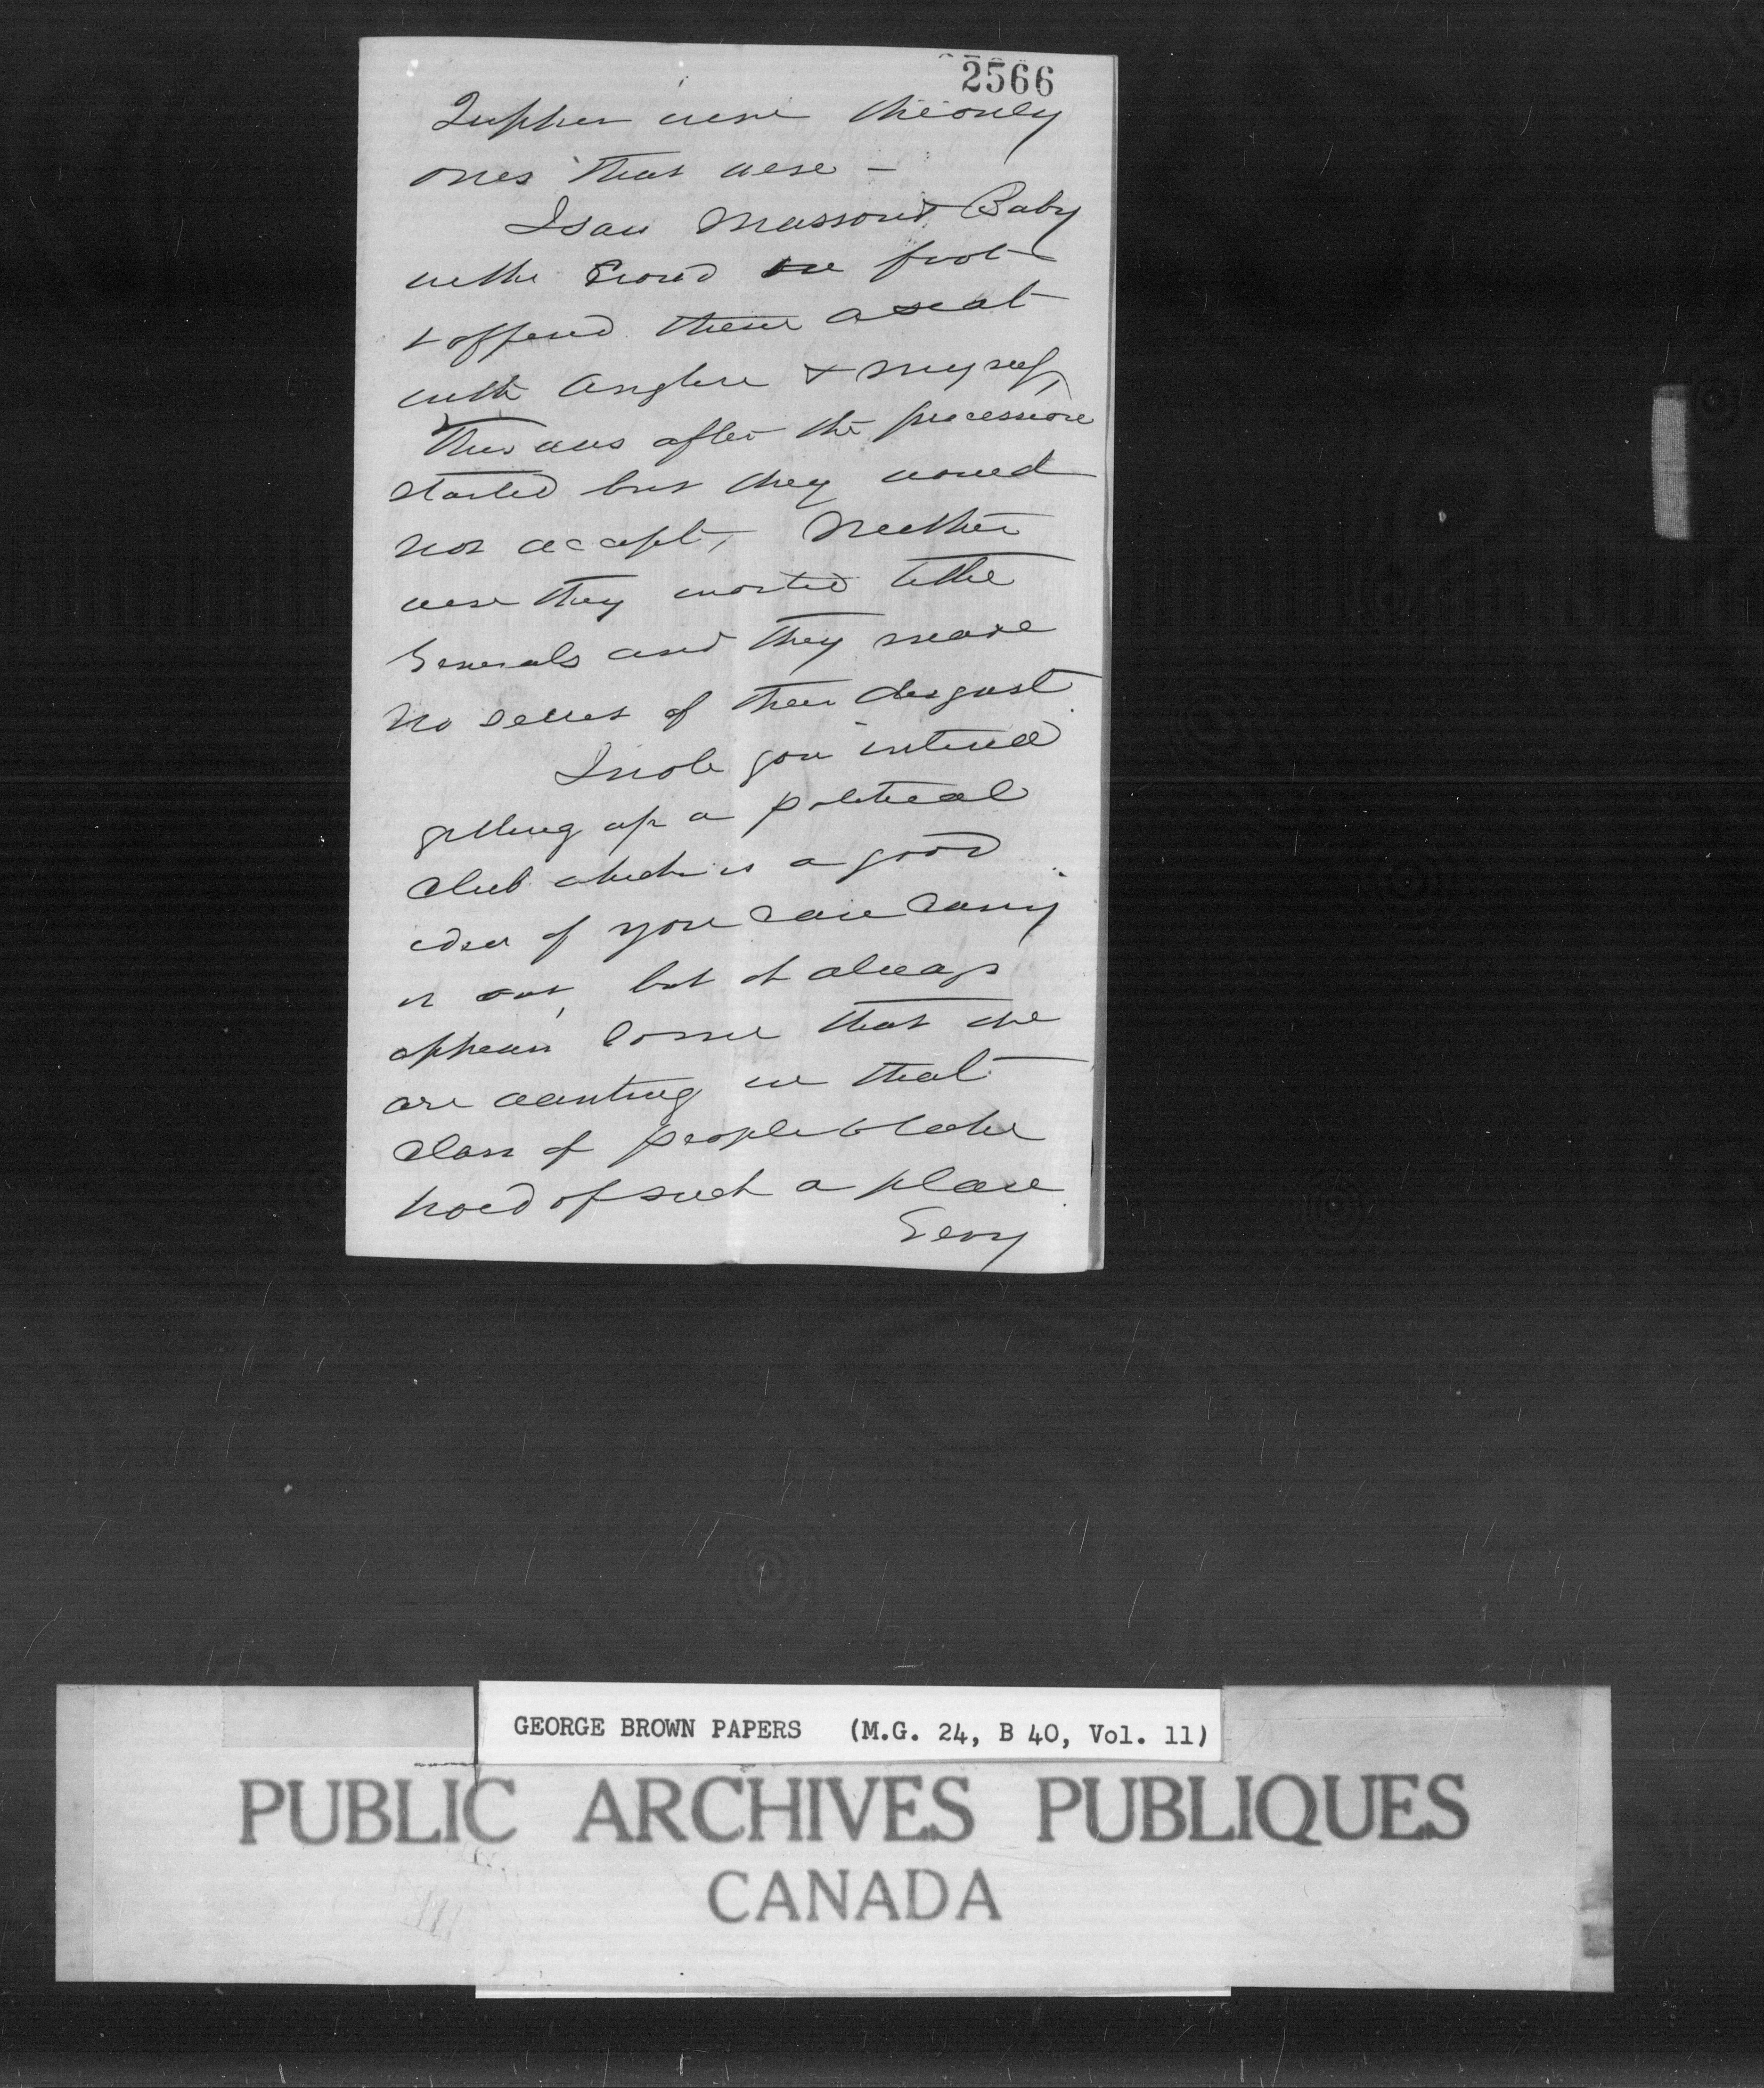 2566
Tupper were the only
ones that were -
I saw Masson & Baby
in the Crowd on foot
& offered them a seat
with Anglin & myself,
This was after the procession
started but they would
not accept, Neither
were they invited to the
Generals and they made
no secret of their disgust
I note you intend
getting up a political
Club which is a good
idea if you can carry
it out, but it always
appears to me that we
are wanting in that
class of people to take
hold of such a place
Gery
GEORGE BROWN PAPERS (M.G. 24, B 40, Vol. 11)
PUBLIC ARCHIVES PUBLIQUES
CANADA